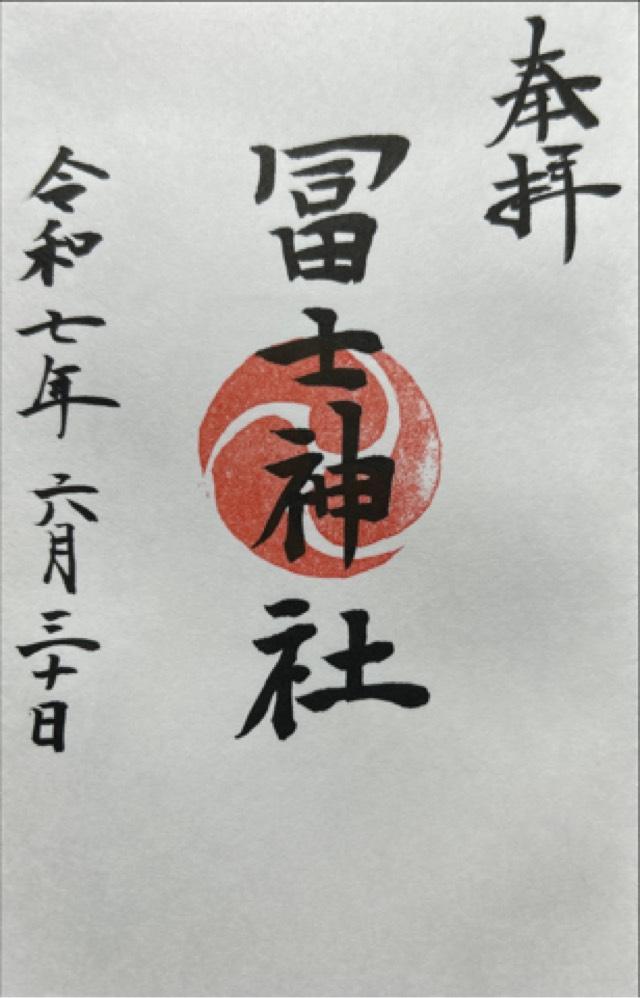 奉拝
冨士神社
令和七年六月三十日